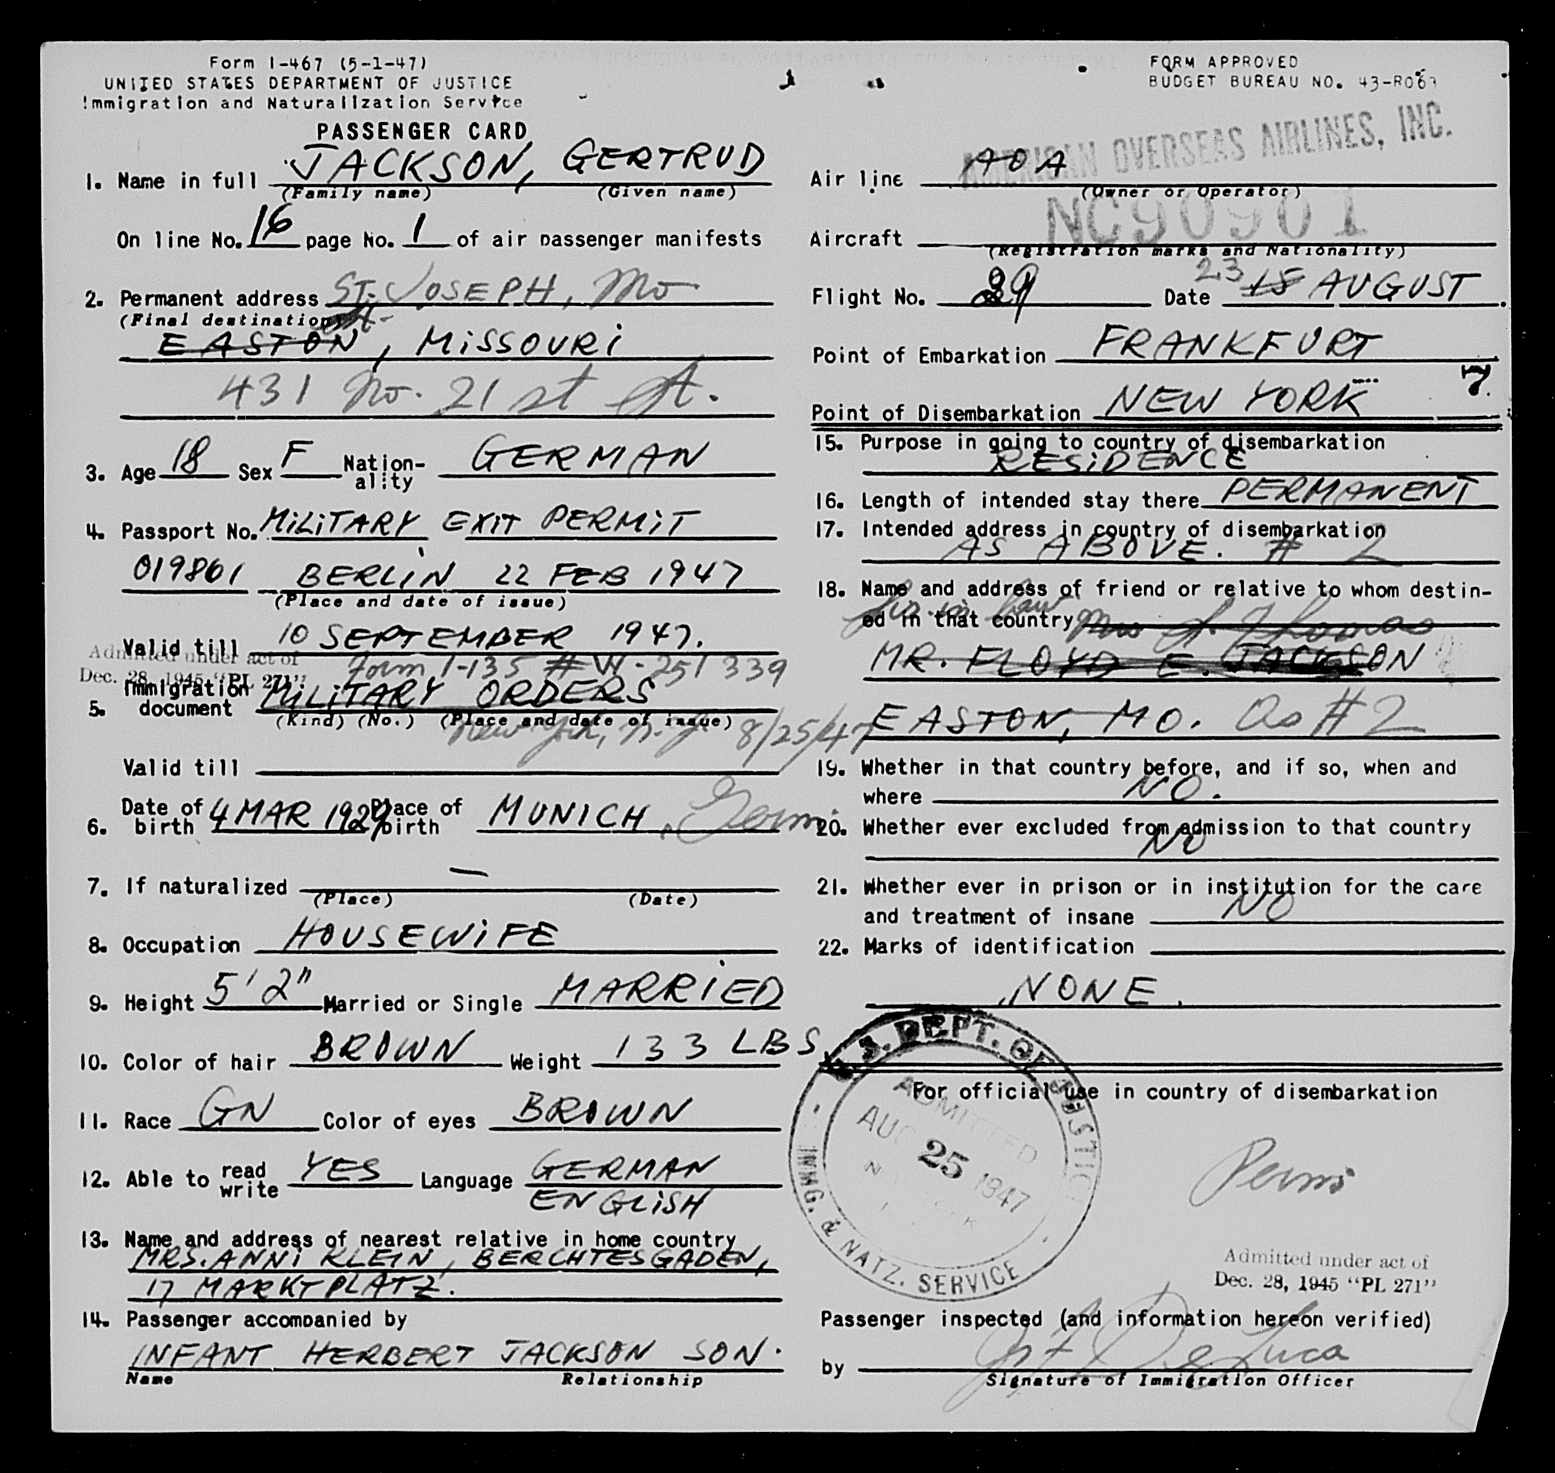 Form I-467 (5-1-47)
UNITED STATES DEPARTMENT OF JUSTICE
Immigration and Naturalization Service
PASSENGER CARD
1. Name in full JACKSON, GERTRUD
(Family name) (Given name)
On line No. 16 page No. 1 of air passenger manifests
2. Permanent address ST. JOSEPH, Mo
(Final destination)
EASTON, MISSOURI
431 No. 21 st St.
3. Age 18 Sex F Nation-ality GERMAN
4. Passport No. MILITARY EXIT PERMIT
019861 BERLIN 22 FEB 1947
(Place and date of issue)
Valid till 10 SEPTEMBER 1947.
Admitted under act of
Dec. 28, 1945 "PL 271"
Form I-135 # W-251339
5. Immigration document MILITARY ORDERS
(Kind) (No.) (Place and date of issue)
New York, N.Y. 8/25/47
Valid till
6. Date of birth 4 MAR 1929 Place of birth MUNICH, Germ.
7. If naturalized —
(Place) (Date)
8. Occupation HOUSEWIFE
9. Height 5'2" Married or Single MARRIED
10. Color of hair BROWN Weight 133 LBS.
11. Race GN Color of eyes BROWN
12. Able to read write YES Language GERMAN
ENGLISH
13. Name and address of nearest relative in home country
MRS. ANNI KLEIN, BERCHTESGADEN,
17 MARKTPLATZ.
14. Passenger accompanied by
INFANT HERBERT JACKSON SON.
Name Relationship
FORM APPROVED
BUDGET BUREAU NO. 43-R063
AMERICAN OVERSEAS AIRLINES, INC.
Air line AOA
(Owner or Operator)
Aircraft NC90901
(Registration marks and Nationality)
Flight No. 29 Date 23 18 AUGUST
Point of Embarkation FRANKFURT
Point of Disembarkation NEW YORK 7
15. Purpose in going to country of disembarkation
RESIDENCE
16. Length of intended stay there PERMANENT
17. Intended address in country of disembarkation
AS ABOVE. # 2
18. Name and address of friend or relative to whom destin-
ed in that country Mrs J. Thomas
MR. FLOYD E. JACKSON
EASTON, MO. as #2
19. Whether in that country before, and if so, when and
where NO.
20. Whether ever excluded from admission to that country
NO
21. Whether ever in prison or in institution for the care
and treatment of insane NO
22. Marks of identification
NONE.
For official use in country of disembarkation
U.S. DEPT. OF JUSTICE
ADMITTED
AUG 25 1947
IMMG. & NATZ. SERVICE
Perm
Admitted under act of
Dec. 28, 1945 "PL 271"
Passenger inspected (and information hereon verified)
by De Luca
Signature of Immigration Officer